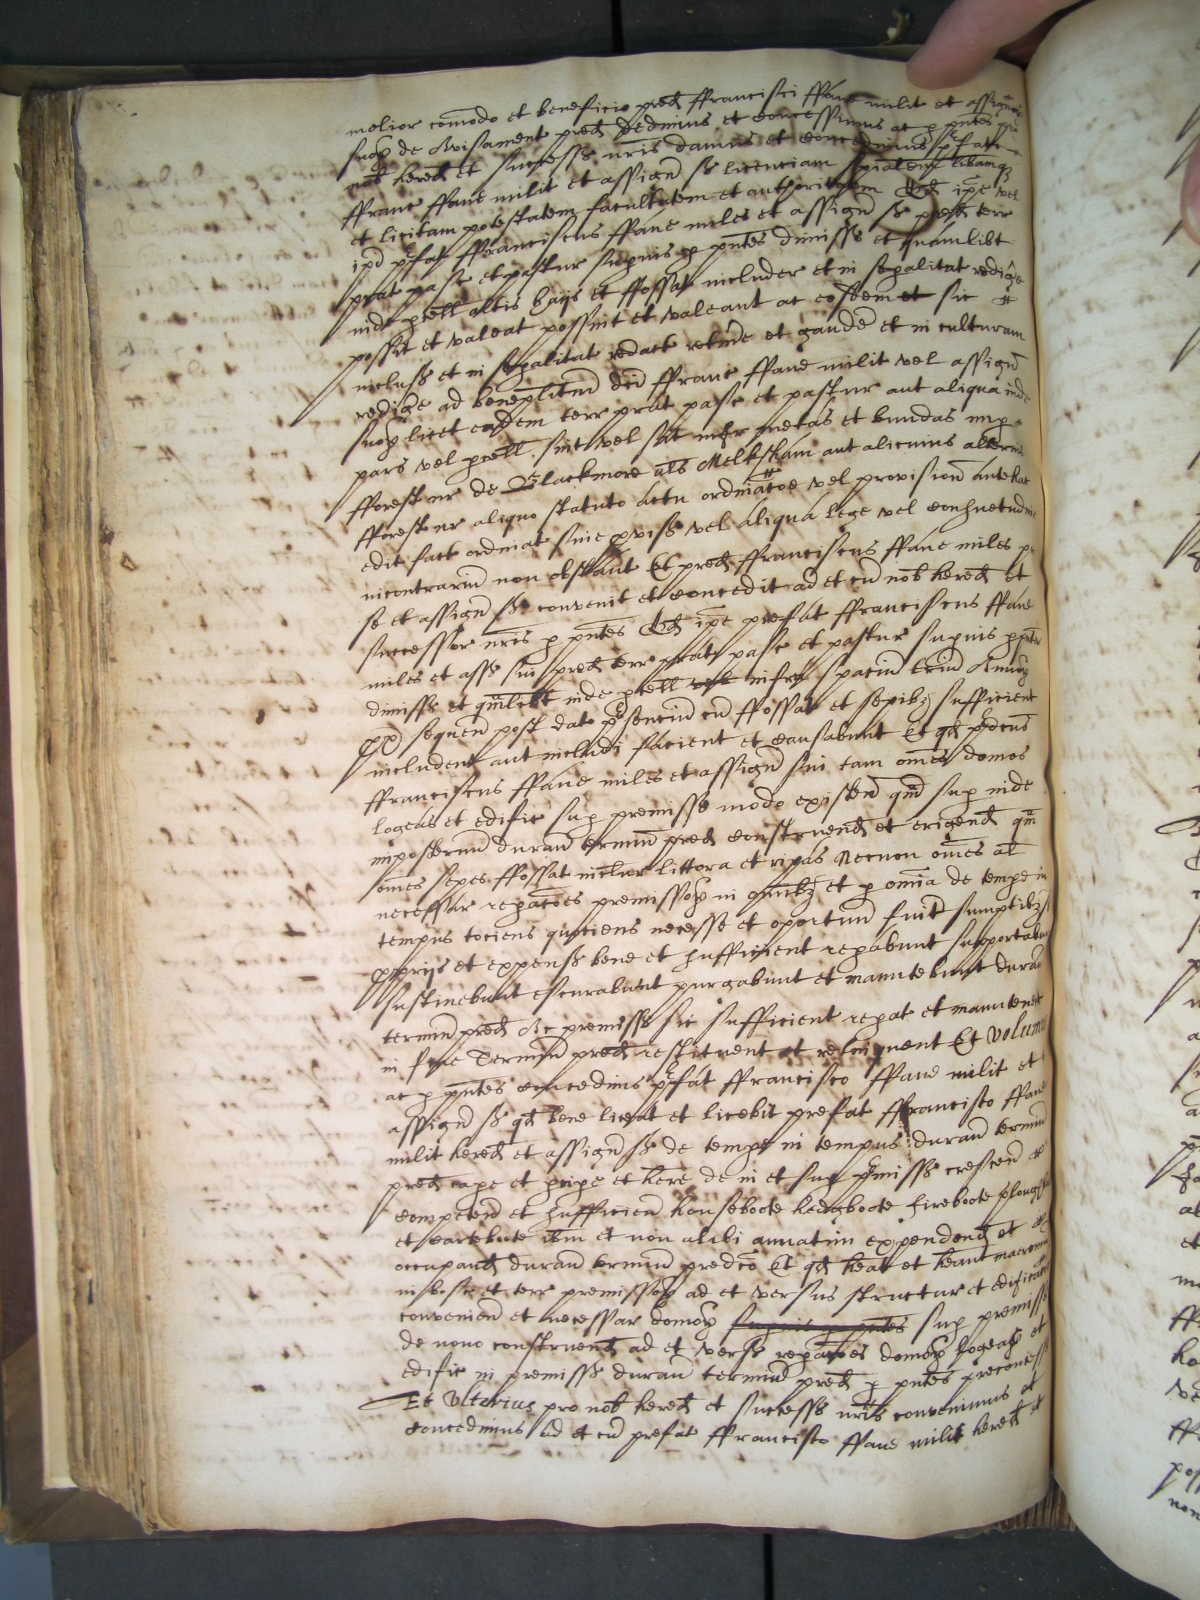 melior comodo et beneficio pred ffrancisci ffane milit et assign
suoȝ de Avisamento pred dedimus et concessimus ac p pntes pro
nob hered et success nris damus et concedimus p'fato
ffranc ffane milit et assign s licenciam spialem libamqȝ
et licitam potestatem facultatem et authoritatem Qd ipe vel
ipi p'fat ffranciscus ffane miles et assign s pred terr
prat pasc et pastur supius p pntes dimiss et quamlibt
inde pcell altis haijs et ffossat includer et in sepalitat redige
possit et valeat possint et valeant ac eosdem et sic
incluss et in sepalitat redact retine et gaude et in culturam
redige ad beneplitm dci ffranc ffane milit vel assign
suoȝ licet eadem terr prat pasc et pastur aut aliqua inde
pars vel pcell sint vel sit infr metas et bundas
fforestur de Blackmore als Melksham aut alicuius alterius
fforestur aliquo statuto actu ordinacoe vel provision antehac
edit fact ordinat sive pviss vel aliqua lege vel consuetudine
incontrarm non obstant Et pred ffranciscus ffane miles p
se et assign s convenit et concedit ad et cu nob hered et
successor nris p pntes Qd ipe prefat ffranciscus ffane
miles et ass sui pred terr prat pasc et pastur supius p pntes
dimiss et quamlibt inde pcell infra spaciu triu Annoȝ
px sequen post dato p'senciu cu ffossat et sepibȝ sufficient
includent aut includi facient et causabunt Et qd p'dcus
ffranciscus ffane miles et assign sui tam omes domos
logeas et edific sup premiss modo existen qm sup inde
imposterum duran termin pred construend et erigend qm
omes sepes ffossat inclur littora et ripas Necnon omes al
necessar repacoes premissoȝ in omibȝ et p omia de tempe in
tempus tociens quotiens necesse et oportun fuit sumptibȝ
ppriis et expenss bene et sufficient repabunt supportabunt
sustinebunt escurabunt purgabunt et manutebunt duran
termin pred Ac premiss sic sufficient repat et manutent
in fine Termini pred restituent et relinquent Et volumus
ac p pntes concedimus p'fat ffrancisco ffane milit et
assign s qd bene liceat et licebit prefat ffrancisco ffane
milit hered et assign s de tempe in tempus duran termin
pred cape et pcipe et here de in et sup p'miss crescen
competen et sufficien houseboote hedgboote fireboote ploughboote
et carteboote ibm et non alibi annatim expendend et
occupand duran termin predco Et qd heat et heant maeremiu
in bosc et terr premissoȝ ad et versus structur et edificacoem
convenien et necessar domoȝ sup premiss
de novo construend ad et verss repacoes domoȝ logeaȝ et
edific in premiss duran termin pred p pntes preconcess
Et Ulterius pro nob hered et success nris convenimus et
concedimus ad et cu prefat ffrancisco ffane milit hered et